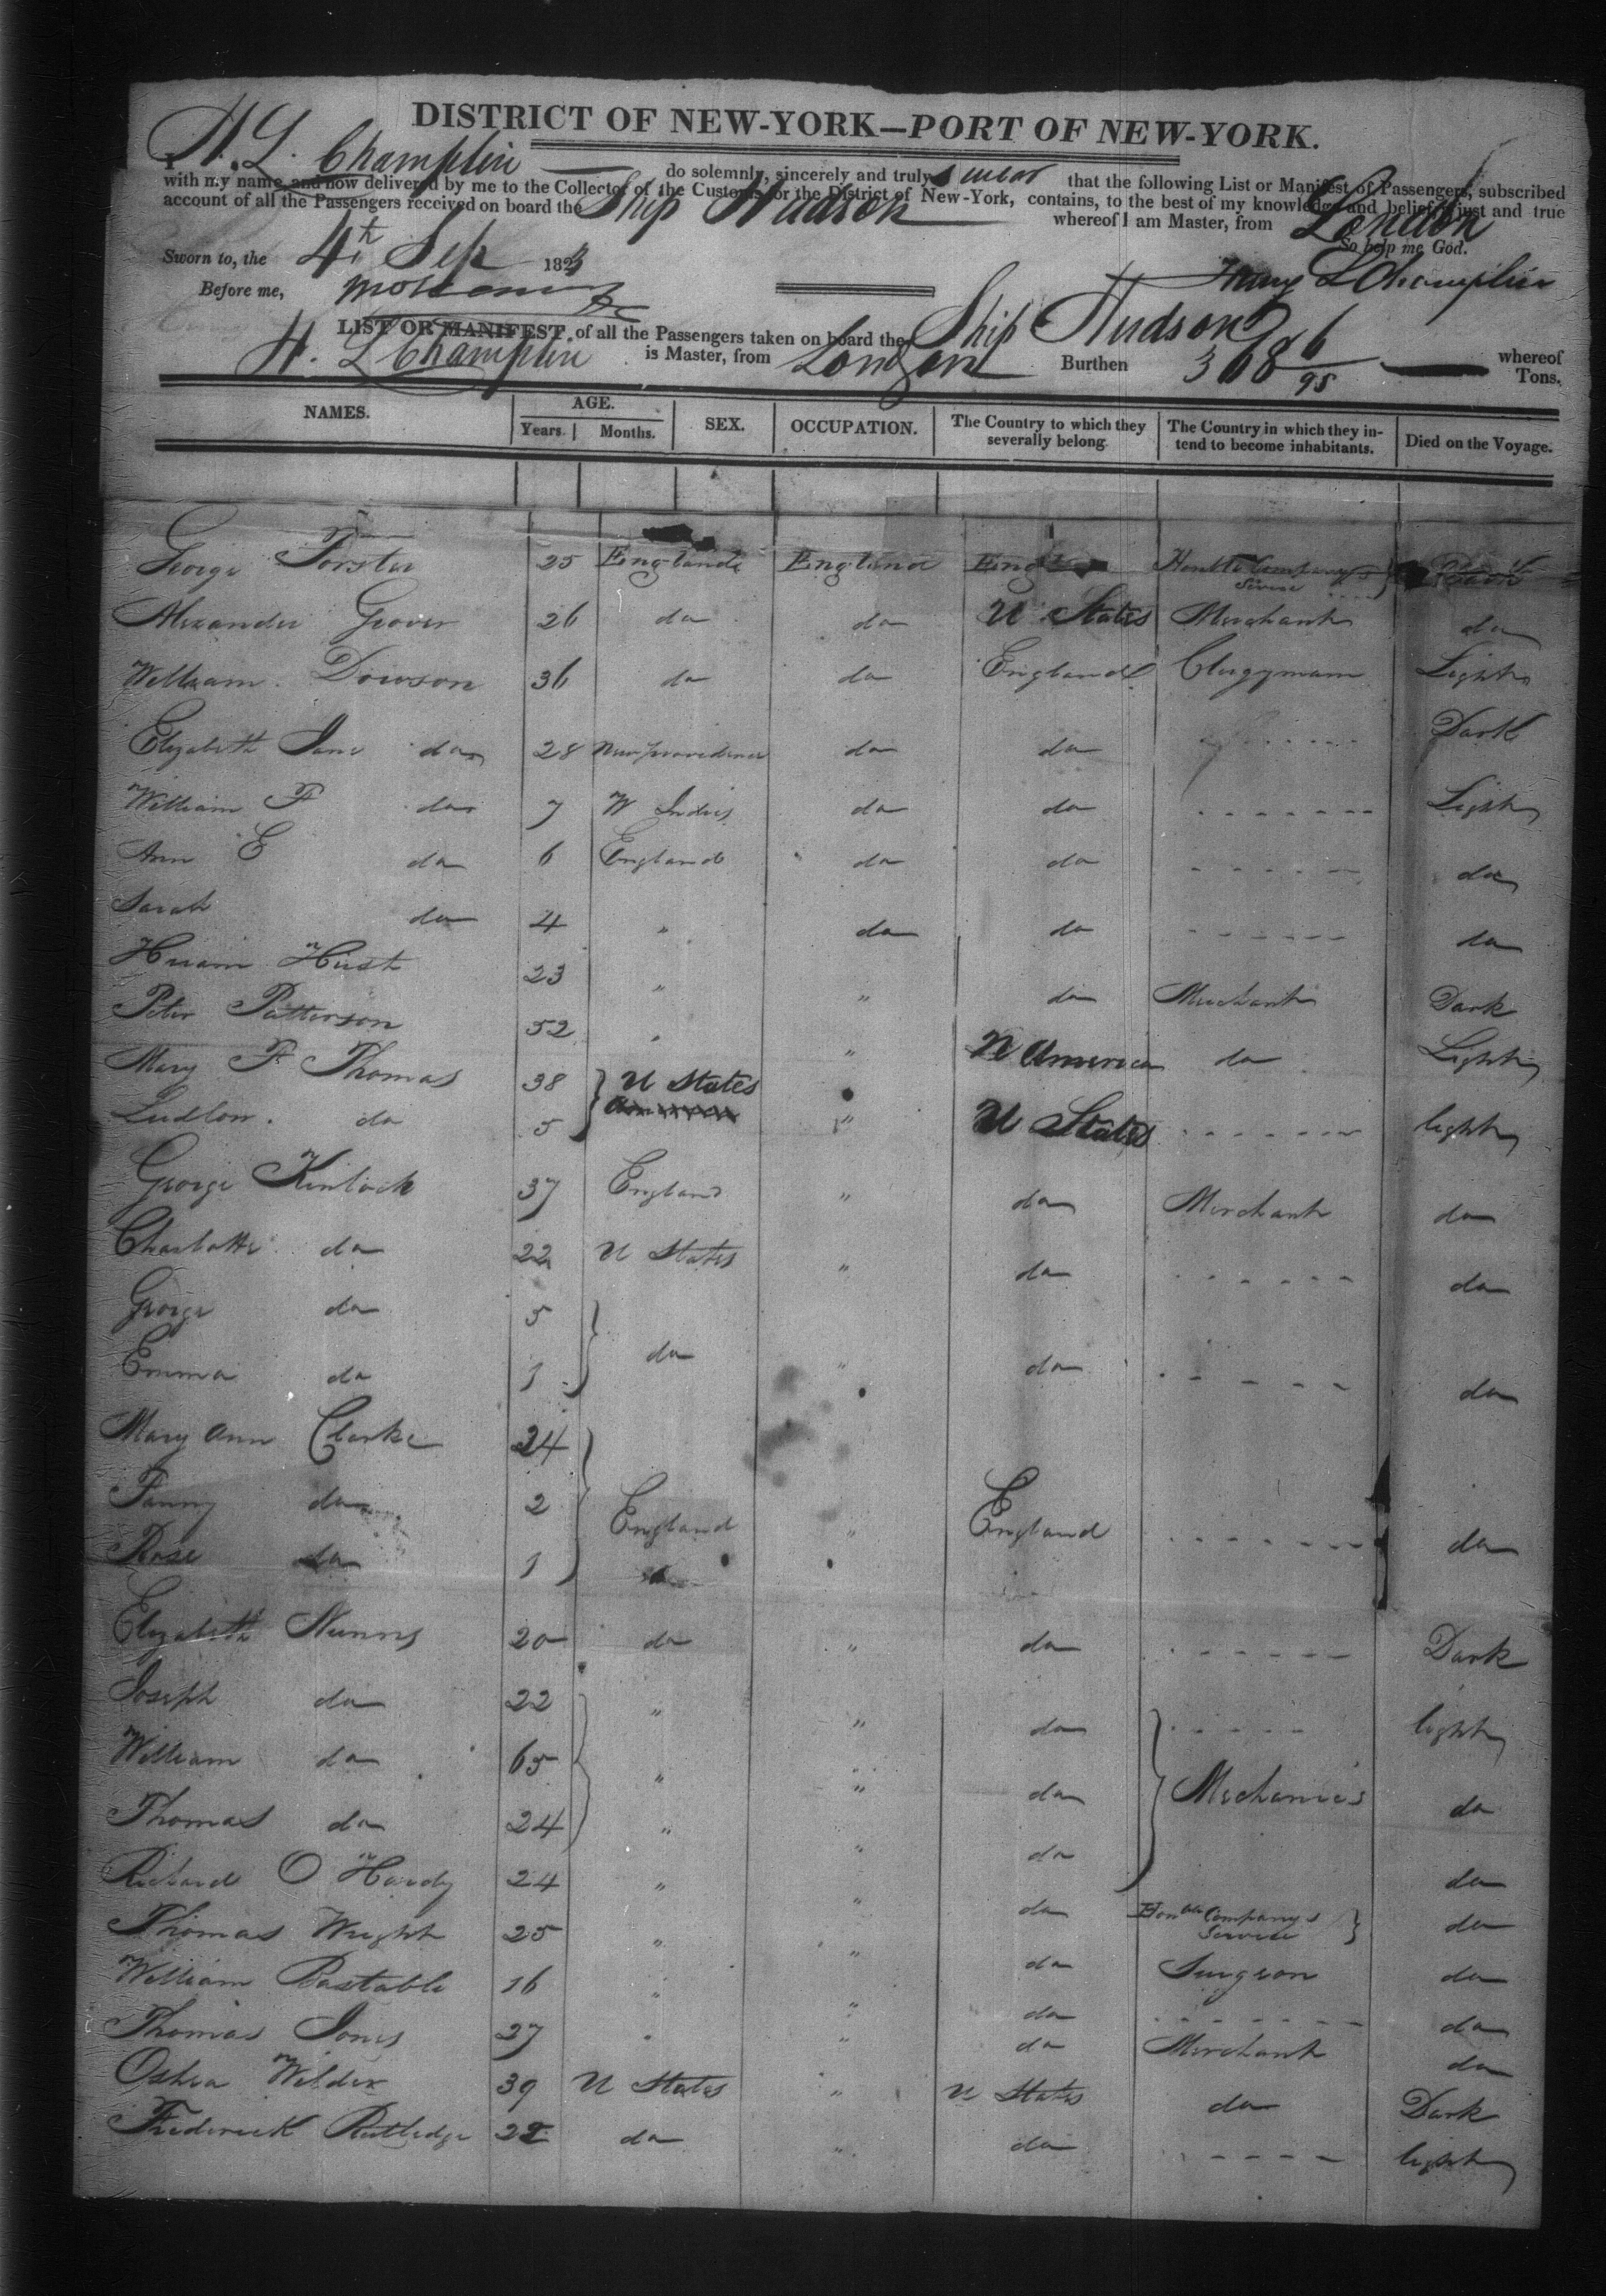 DISTRICT OF NEW-YORK—PORT OF NEW-YORK.
I H. L. Champlin do solemnly, sincerely and truly swear that the following List or Manifest of Passengers, subscribed
with my name, and now delivered by me to the Collector of the Customs for the District of New-York, contains, to the best of my knowledge and belief, a just and true
account of all the Passengers received on board the Ship Hudson whereof I am Master, from London
So help me God.
Sworn to, the 4th Sep 1823
Before me, Henry L Champlin
LIST OR MANIFEST. of all the Passengers taken on board the Ship Hudson whereof
H. L Champlin is Master, from London Burthen 368 86/95 Tons.
NAMES. AGE. Years. Months. SEX. OCCUPATION. The Country to which they severally belong. The Country in which they intend to become inhabitants. Died on the Voyage.
George Forster 25 England England Engl Honble Companys Sevice Dark
Alexander Grover 26 do do U States Merchant do
William Dowson 36 do do England Clergyman Light
Elizabeth Jane do 28 New providence do do - - - - - Dark
William F do 7 W Indies do do - - - - - - - Light
Ann E do 6 England do do - - - - - - do
Sarah do 4 " do do - - - - - - do
Hiram Hirst 23 " " do Merchant Dark
Peter Patterson 52 " " N America do Light
Mary F Thomas 38 U States
Ludlow. do 5 " U States - - - - - - light
George Kinlock 37 England " do Merchant do
Charlotte do 22 U States " do - - - - - - do
George do 5
Emma do 1 do " do - - - - - - do
Mary Ann Clarke 24
Fanny do 2 England " England - - - - - - - do
Rose do 1
Elizabeth Nunns 20 do " do - - - - - - Dark
Joseph do 22 " " do - - - - - light
William do 65 " " do Mechanics do
Thomas do 24 " " do do
Richard O Hardy 24 " " do Honble Companys Service do
Thomas Wright 25 " " do Surgeon do
William Bastable 16 " " do - - - - - - - do
Thomas Jones 27 " " do Merchant do
Oshea Wilder 39 U States " U States do Dark
Frederick Rutledge 22 do " do - - - - - light